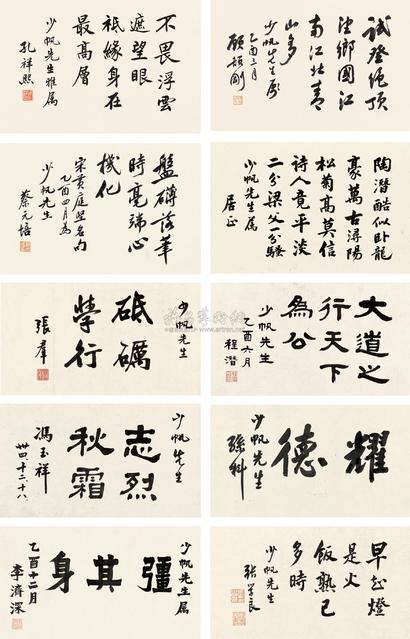 試登絕頂
望鄉國江
南江北青
山多
少帆先生屬
乙酉三月
顧頡剛
不畏浮雲
遮望眼
祗緣身在
最高層
少帆先生雅屬
孔祥熙
陶潛酷似卧龍
豪萬古潯陽
松菊高莫信
詩人竟平淡
二分梁父一分騷
少帆先生屬
居正
盤礴落筆
時毫端心
機化
宋黃庭堅名句
乙酉四月為
少帆先生
蔡元培
大道之
行天下
為公
少帆先生
乙酉六月
程潛
少帆先生
砥礪
學行
張羣
耀德
少帆先生
孫科
少帆先生
志烈
秋霜
馮玉祥
卅四十二二十八
早知燈
是火
飯熟已
多時
少帆先生
張學良
少帆先生屬
彊其身
乙酉十二月
李濟深